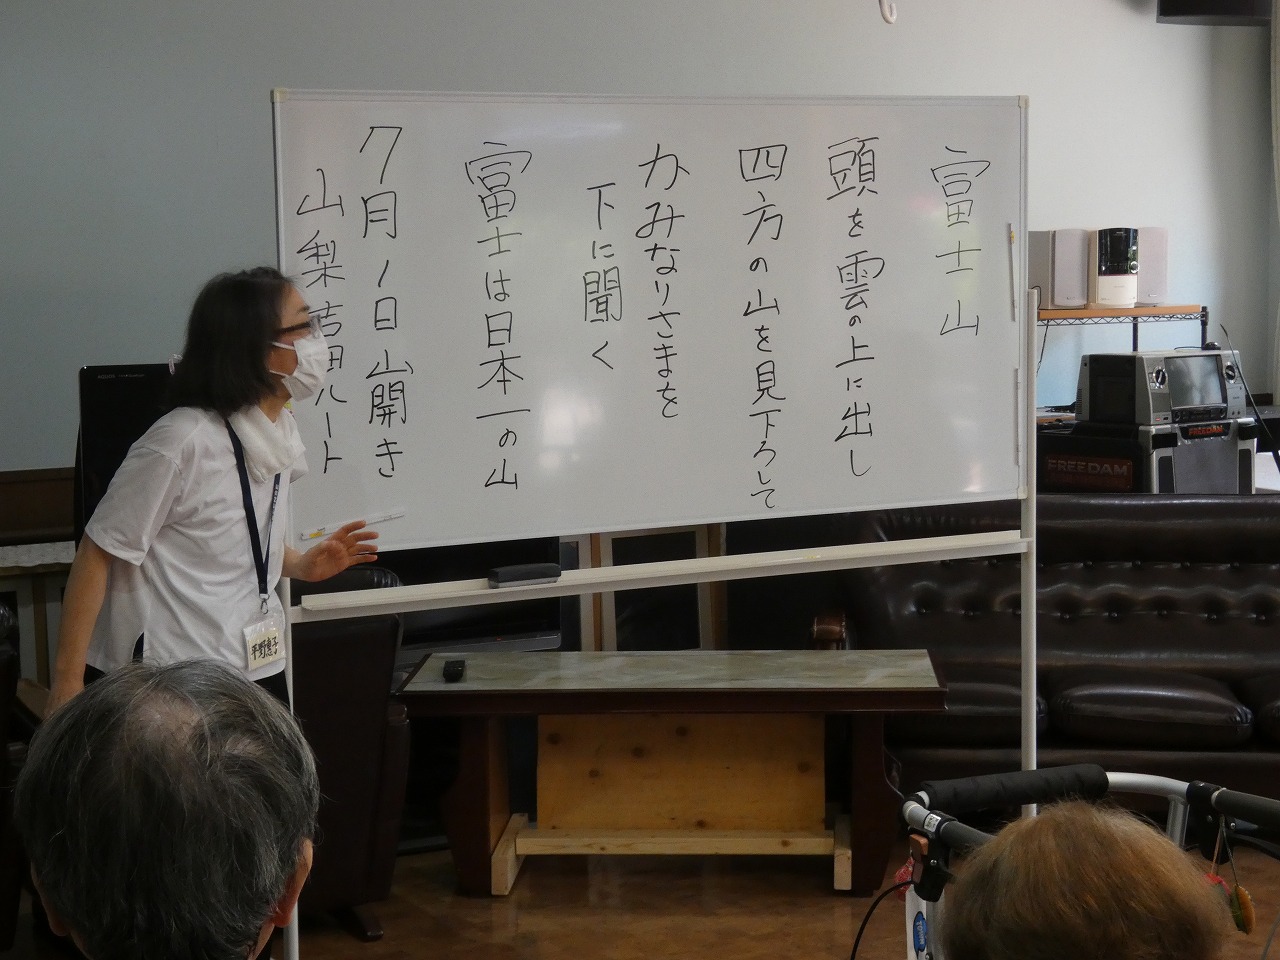 富士山
頭を雲の上に出し
四方の山を見下ろして
かみなりさまを
下に聞く
富士は日本一の山
7月1日山開き
山梨吉田ルート
平野恵子
FREEDAM
FREEDAM